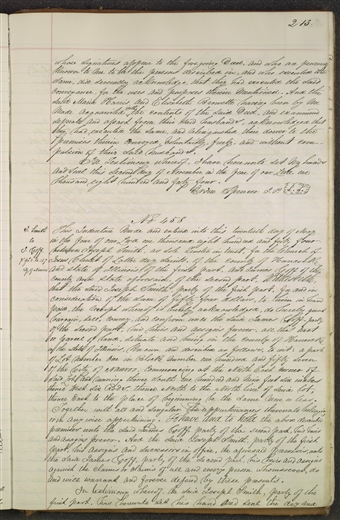 215.
whose signatures appear to the foregoing Deed, and who are personally
known to me to be the persons described in, and who executed the
same, did severally acknowledge that they had executed the said
conveyance for the uses and purposes therein mentioned. And the
said Maria and Elizabeth having been by me
made acquainted with the contents of the said Deed, and examined
separate and apart from their said husbands, acknowledged that
they had executed the same, and relinquished their dower to the
premises therein conveyed, voluntarily, freely, and without com-
pulsion of their said husbands.
In Testimony whereof, I have hereunto set my hand
and seal this day of November in the year of our Lord, one
thousand, eight hundred and forty four.
Spencer
No 458
J. Smith
to
J. Goff
This Indenture Made and entered into this twentieth day of May
in the year of our Lord one thousand eight hundred and forty
between Joseph Smith, as sole Trustee in trust for the Church of
Jesus Christ of Latter day Saints, of the county of Hancock
and state of Illinois of the first part. And James Goff of the
county and state aforesaid of the second part. Witnesseth,
that the said Joseph Smith party of the first part, for and in
consideration of the sum of fifty four dollars, to them in hand
paid, the receipt whereof is hereby acknowledged, do hereby grant
bargain, sell, convey and confirm unto the said James Goff, party
of the second part, his heirs and assigns forever, all that tract
or parcel of land, situate and being in the county of Hancock
of the State of Illinois, known and described as follows, to wit, a part
of Lot number one in Block number one hundred and fifty seven
of the City of Nauvoo, commencing at the North East corner of
said Lot, running thence South one hundred and feet six inches
thence West six rods, thence North to the North line of said Lot,
thence East to the place of beginning be the same more or less.
Together with all and singular the appurtenances thereunto belonging
or in any wise appertaining. To have and to hold the above described
premises unto the said James Goff, party of the second part, his heirs
and assigns forever. And the said Joseph Smith, party of the first
part, his assigns and successors in office, the aforesaid premises unto
the said James Goff, party of the second part, his heirs and assigns
against the claim or claims of all and every person whomsoever, do
and will warrant and forever defend by these presents.
In testimony whereof, the said Joseph Smith, party of the
first part, has hereunto set his hand and seal the day and